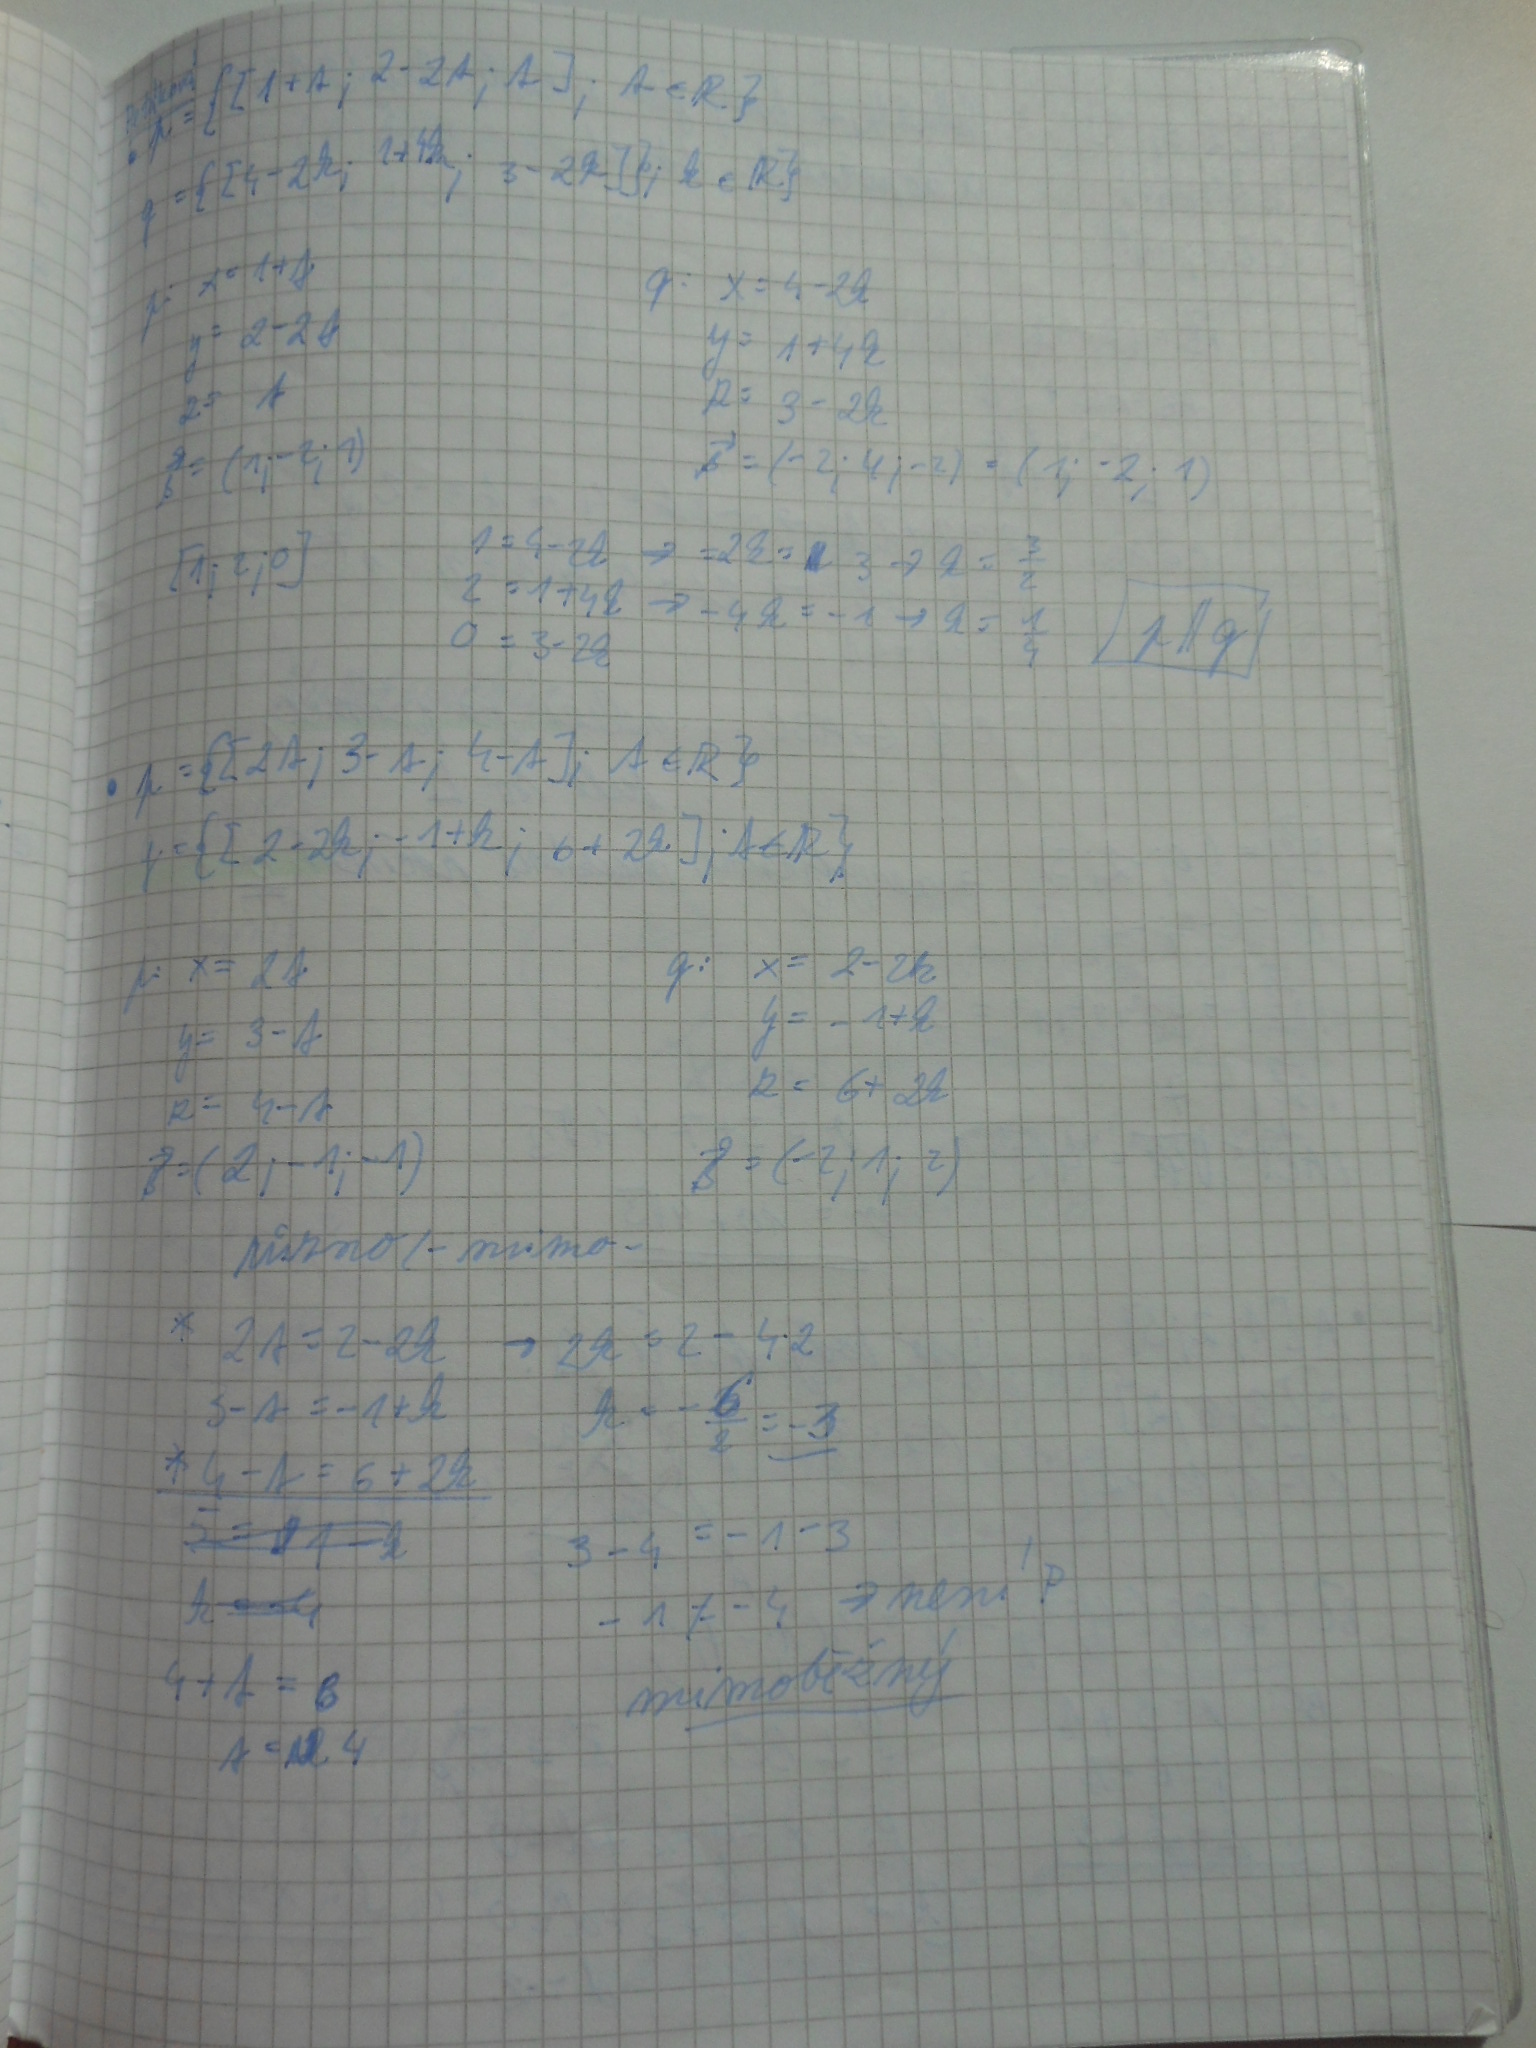 p = {[1+t; 2-2t; t]; t∈R}
q = {[4-2k; 1+4k; 3-2k]}; k∈R}
p: x = 1+t
y = 2-2t
z = t
q: x = 4-2k
y = 1+4k
z = 3-2k
s⃗ = (1; -2; 1)
s⃗ = (-2; 4; -2) = (1; -2; 1)
[1; 2; 0]
1 = 4-2k → 2k = 3 → k = 3/2
2 = 1+4k → -4k = -1 → k = 1/4
0 = 3-2k
p ∦ q
p = {[2t; 3-t; 4-t]; t∈R}
q = {[2-2k; -1+k; 6+2k]; t∈R}
p: x = 2t
y = 3-t
z = 4-t
q: x = 2-2k
y = -1+k
z = 6+2k
s⃗ = (2; -1; -1)
s⃗ = (-2; 1; 2)
různo/-mimo-
* 2t = 2-2k → 2k = 2-4·2
3-t = -1+k
k = -6/2 = -3
* 4-t = 6+2k
3-4 = -1-3
-1 ≠ -4 → není P
4+t = 8
t = 4
mimoběžný